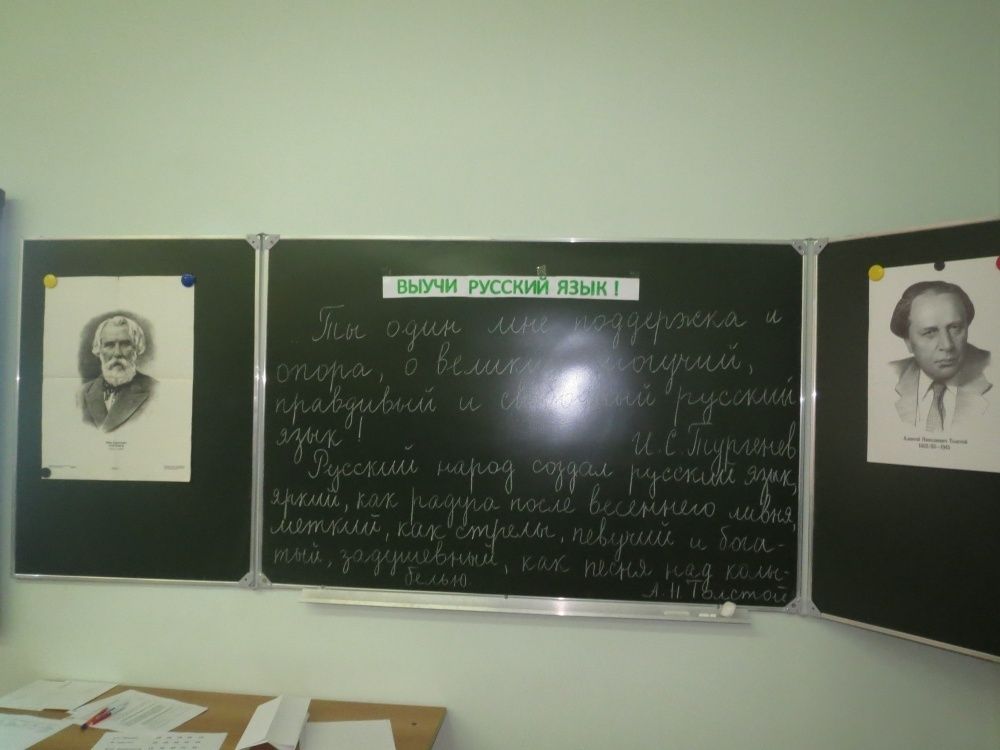 ВЫУЧИ РУССКИЙ ЯЗЫК!
Ты один мне поддержка и
опора, о великий, могучий,
правдивый и свободный русский
язык!
И. С. Тургенев
Русский народ создал русский язык,
яркий, как радуга после весеннего ливня,
меткий, как стрелы, певучий и бога-
тый, задушевный, как песня над колы-
белью.
А. Н Толстой
Алексей Николаевич Толстой
1882/83—1945